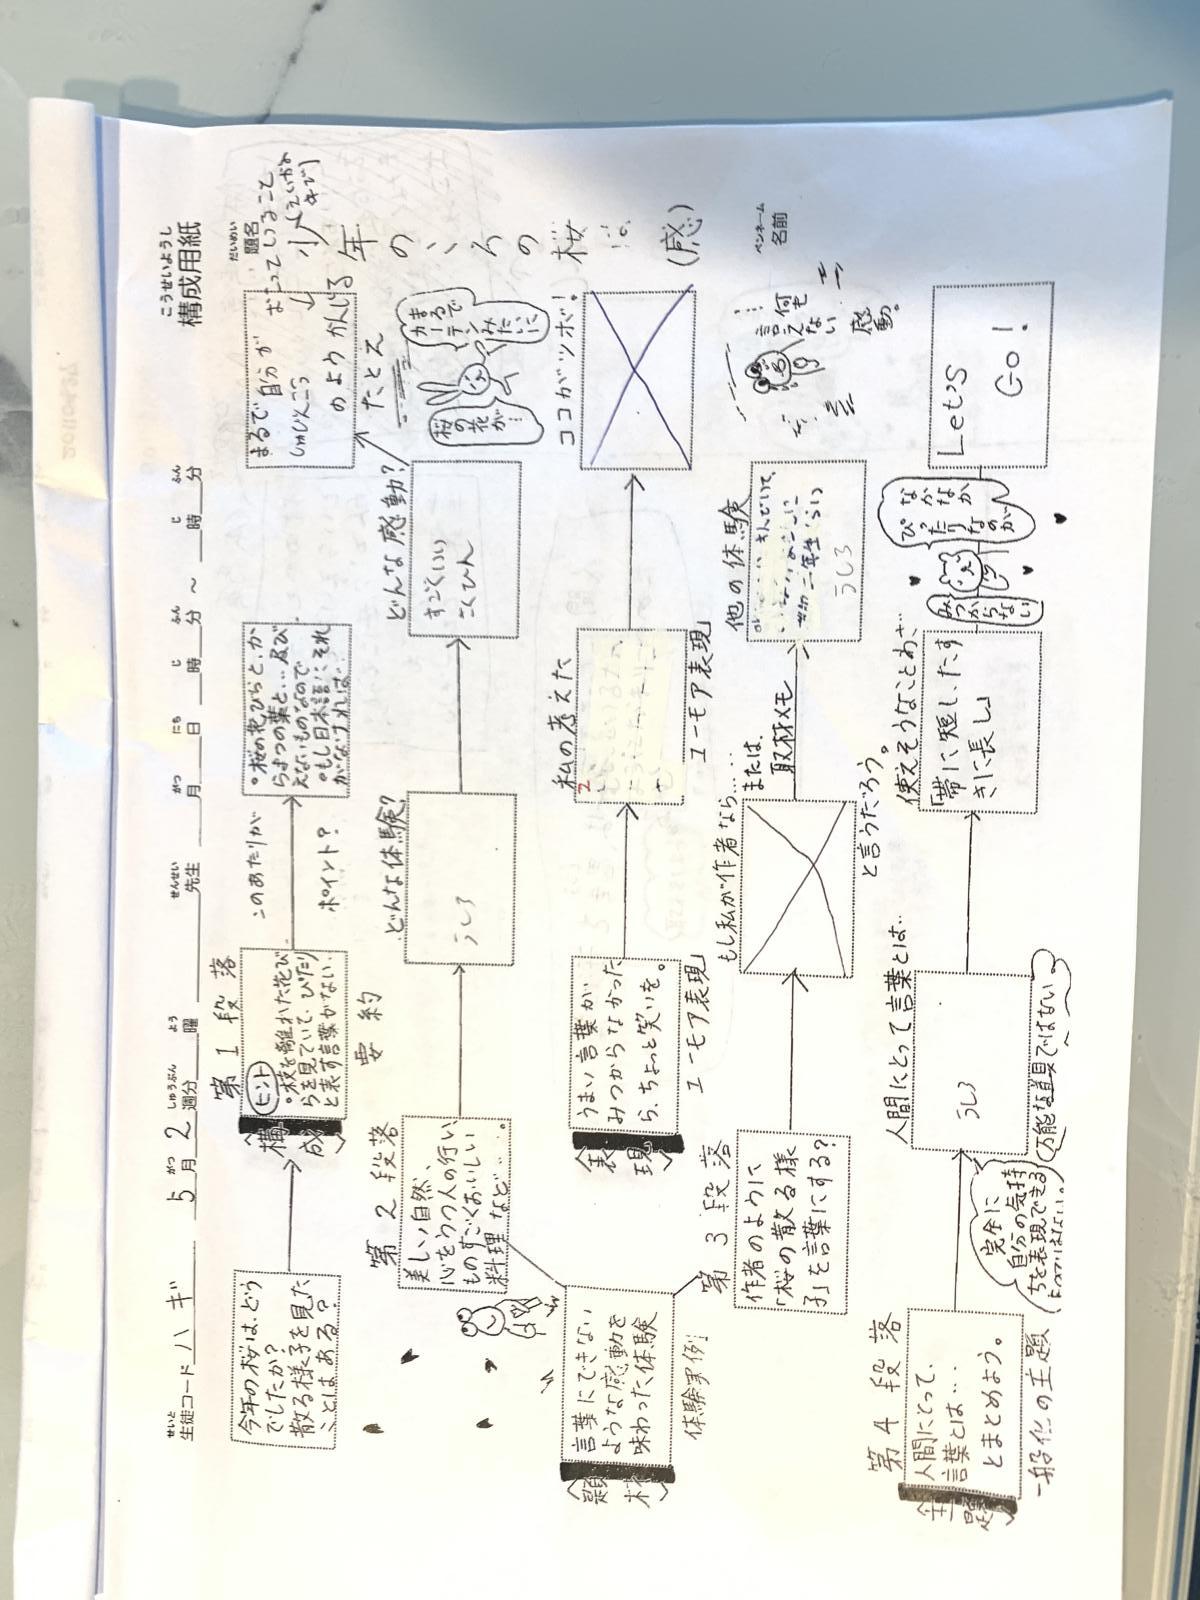 こうせいようし
構成用紙
せいと
生徒コード ハギ
がつ しゅうぶん よう
5月 2週分 曜
せんせい
先生
がつ にち じ ふん じ ふん
月 日 時 分 ~ 時 分
だいめい
題名
少年のころの桜は。
(感)
ペンネーム
名前
今年の桜は、どう
でしたか?
散る様子を見た
ことはある?
第1段落
〈構成〉
ヒント
。枝を離れた花び
らを見ていて、ぴたり
と表す言葉がない。
このあたりが
ポイント?
。桜の花びらと、か
らまつの葉と…及び
えないものなので
。もし日本語に、それ
がなければ…?
まるで 自分が
しゅじんこう
のよう かんじる
おもってしること
たとえ
第2段落
美しい自然、
心をうつ人の行い、
ものすごくおいしい
料理など…。
要約
どんな体験?
うしろ
どんな感動?
すごくいい
さくひん
桜の
花が…
まるで
みたいに
ココがツボ!
〈題材〉
言葉にできない
ような感動を
味わった体験
体験実例
〈表現〉
うまい言葉が
みつからなかった
ら、ちょっと笑いを。
ユーモア表現
私の考えた
ユーモア表現
第3段落
作者のように
「桜の散る様
子」を言葉にする?
もし私が作者なら……
と言うだろう。
または、
取材メモ
他の体験
二年生くらい
うしろ
…
何も
言えない
感動。
第4段落
〈主題〉
人間にとって、
言葉とは…
とまとめよう。
一般化の主題
完全に
自分の気持
ちを表現できる
人間にとって言葉とは…
うしろ
万能な道具ではない
使えそうなことわざ
「帯に短し、たす
きに長し」
なかなか
ぴったり
なのが
みつからない
Let's
Go!